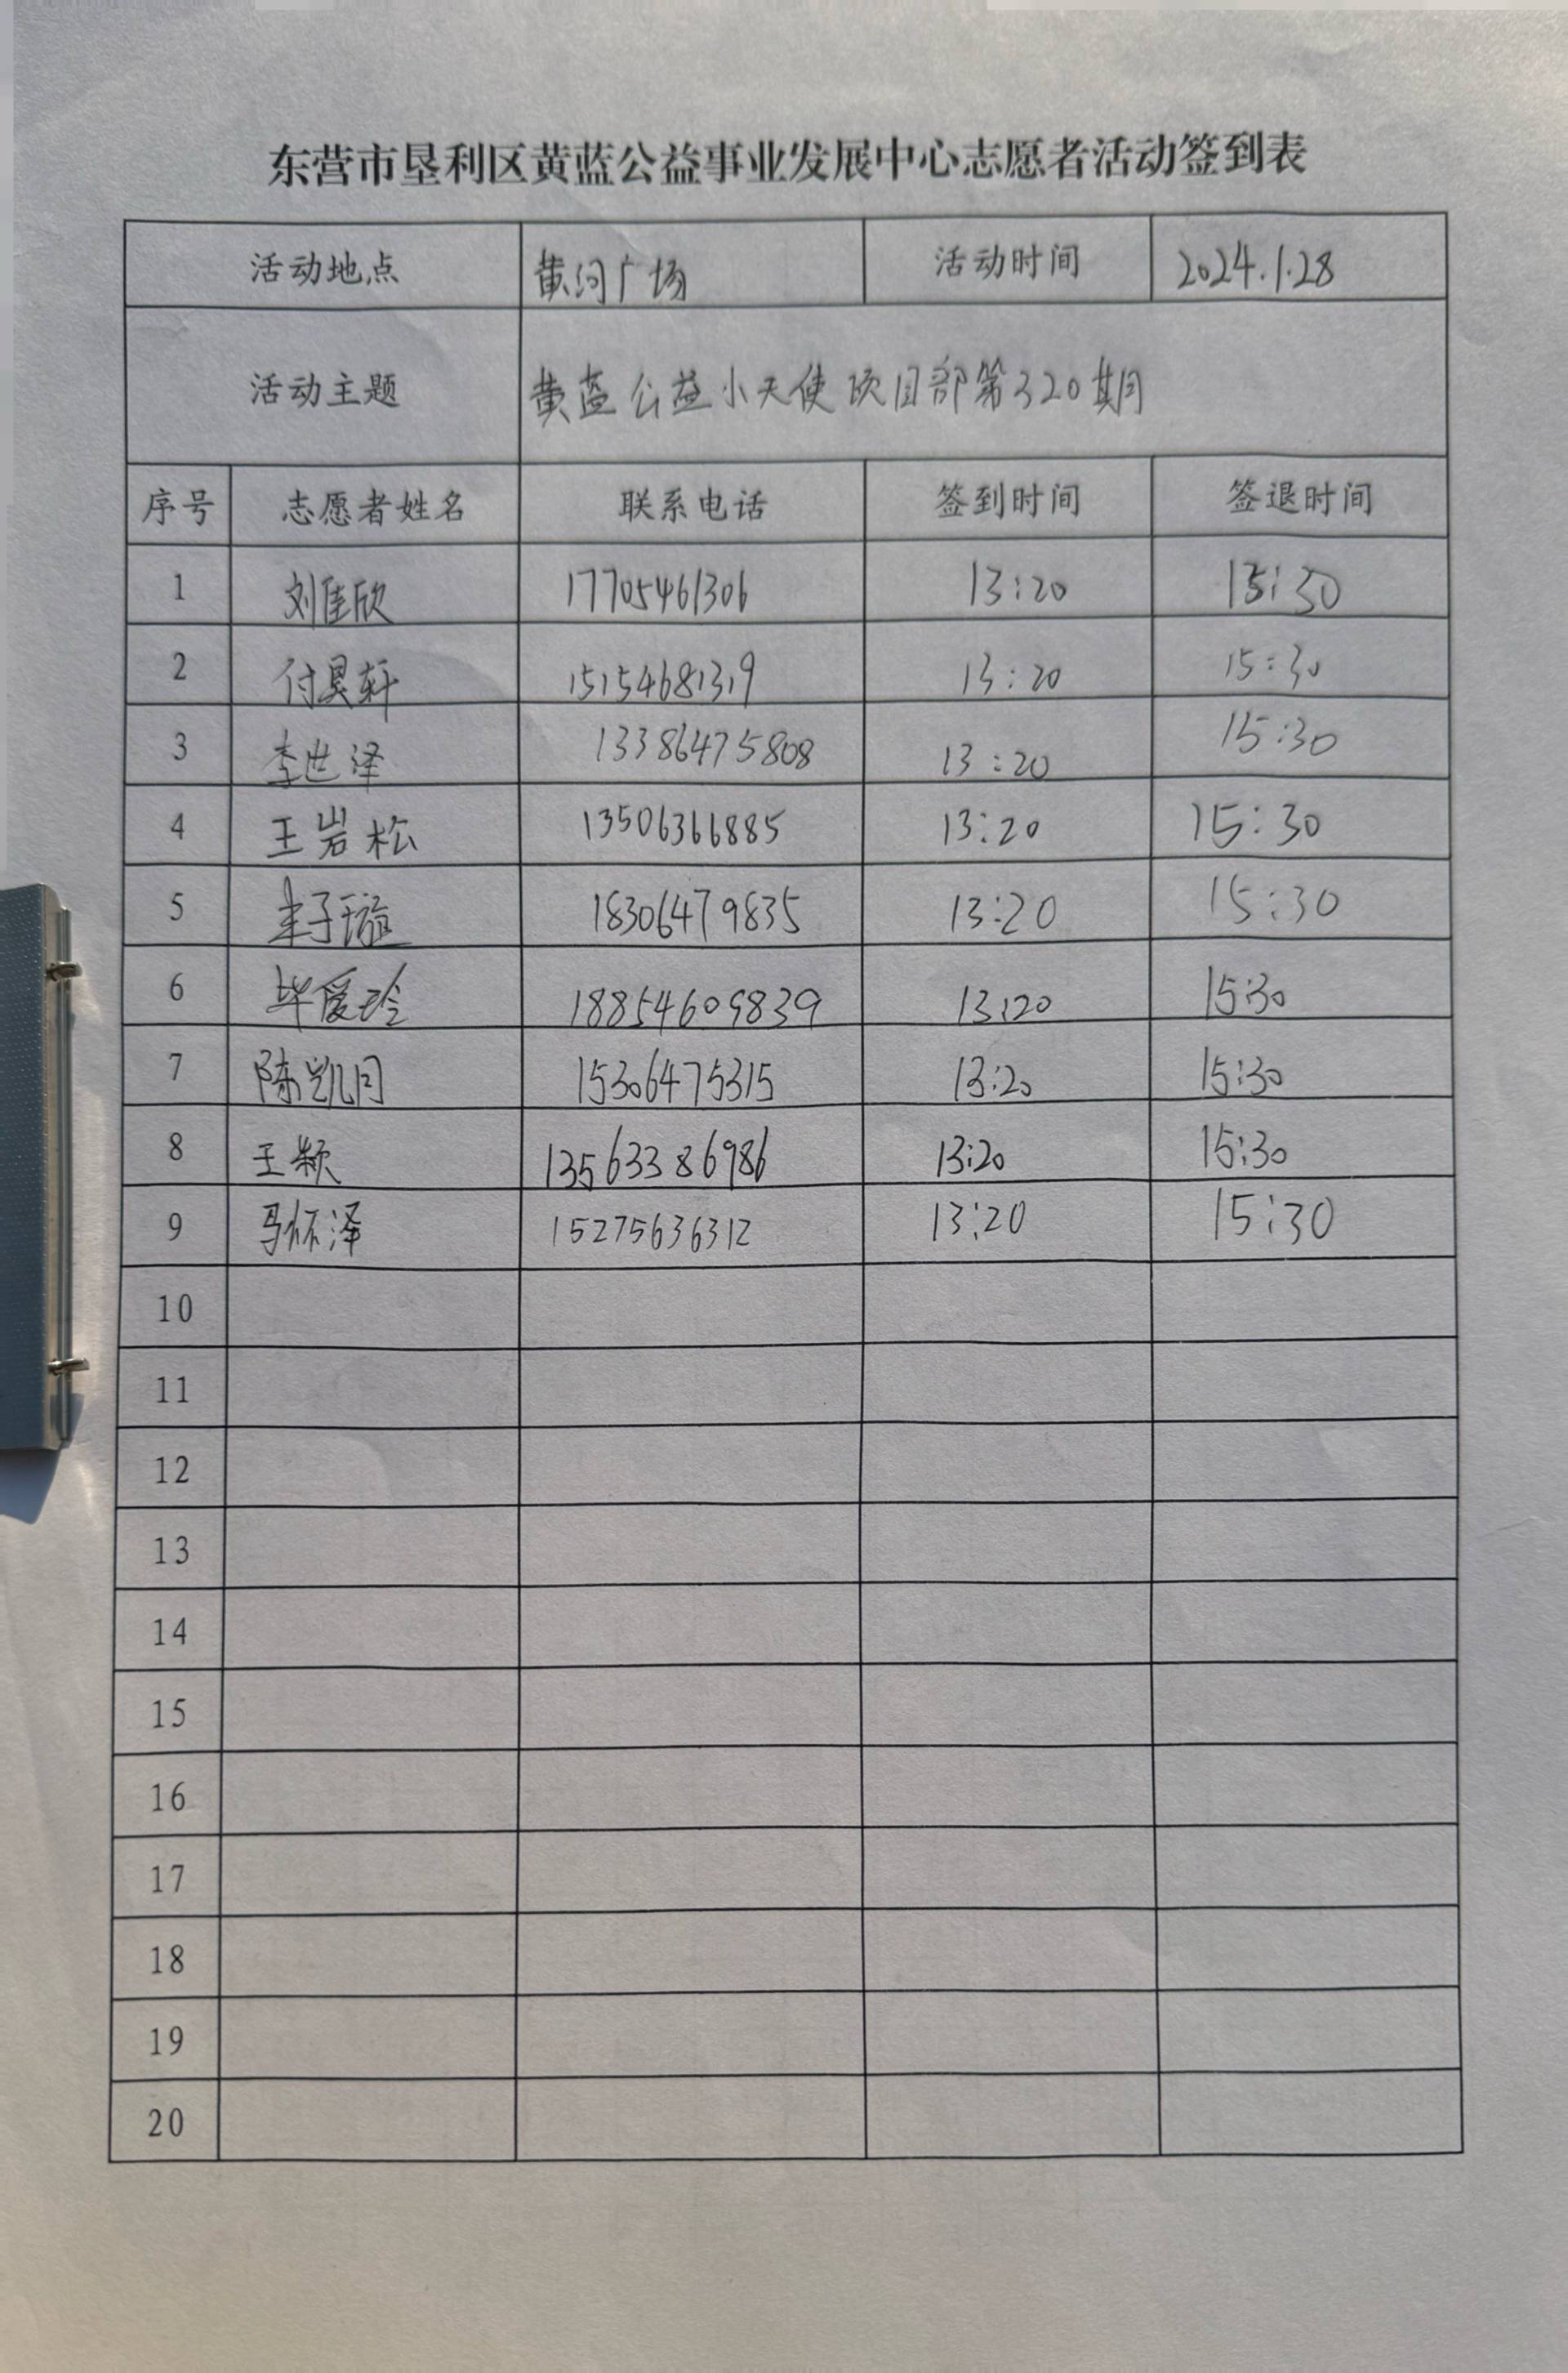 东营市垦利区黄蓝公益事业发展中心志愿者活动签到表
活动地点 黄河广场 活动时间 2024.1.28
活动主题 黄蓝公益小天使项目部第320期
序号 志愿者姓名 联系电话 签到时间 签退时间
1 刘佳欣 17705461306 13:20 15:30
2 付昊轩 15154681319 13:20 15:30
3 李世泽 13386475808 13:20 15:30
4 王岩松 13506366885 13:20 15:30
5 子璇 18306479835 13:20 15:30
6 毕爱玲 18854609839 13:20 15:30
7 陈凯月 15306475315 13:20 15:30
8 王颖 13563386986 13:20 15:30
9 马怀泽 15275636312 13:20 15:30
10
11
12
13
14
15
16
17
18
19
20